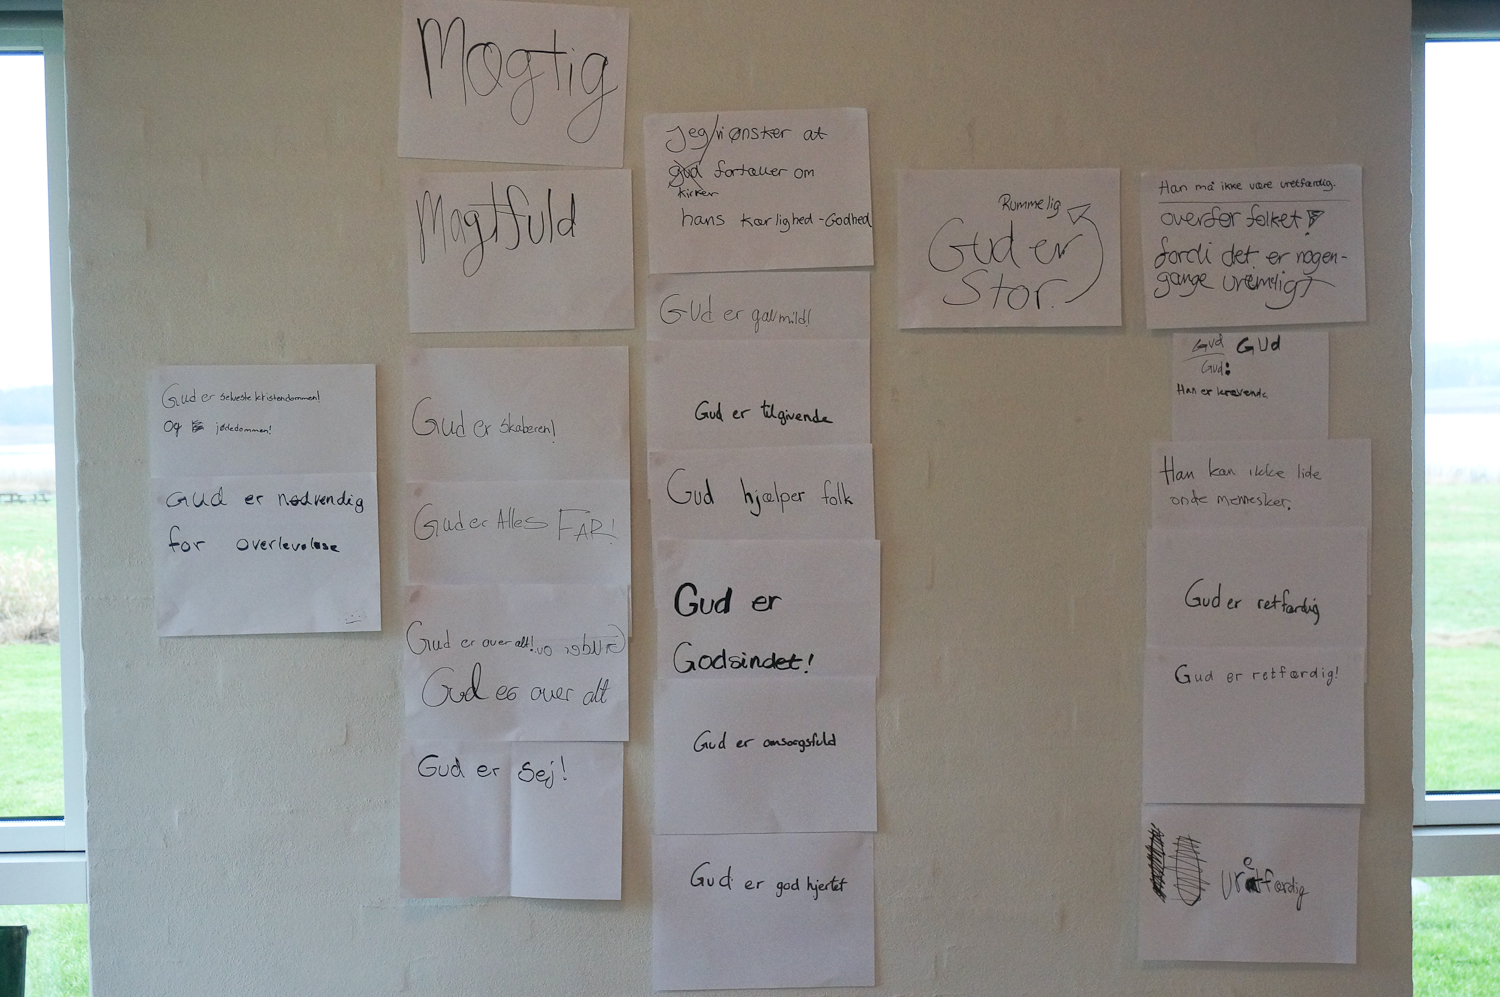 Gud er selveste kristendommen!
Og jødedommen!
Gud er nødvendig
for overlevelse
Mægtig
Magtfuld
Gud er skaberen!
Gud er Alles FAR!
Gud er over alt!
Gud er over alt
Gud er Sej!
Jeg/vi ønsker at
gud fortæller om
kirken
hans kærlighed - Godhed
Gud er gavmild!
Gud er tilgivende
Gud hjælper folk
Gud er
Godsindet!
Gud er omsorgsfuld
Gud er god hjertet
Rummelig
Gud er
Stor.
Han må ikke være uretfærdig.
overfor folket!
fordi det er nogen-
gange urimeligt
Gud GUd
Gud:
Han er krævende
Han kan ikke lide
onde mennesker.
Gud er retfærdig
Gud er retfærdig!
uretfærdig